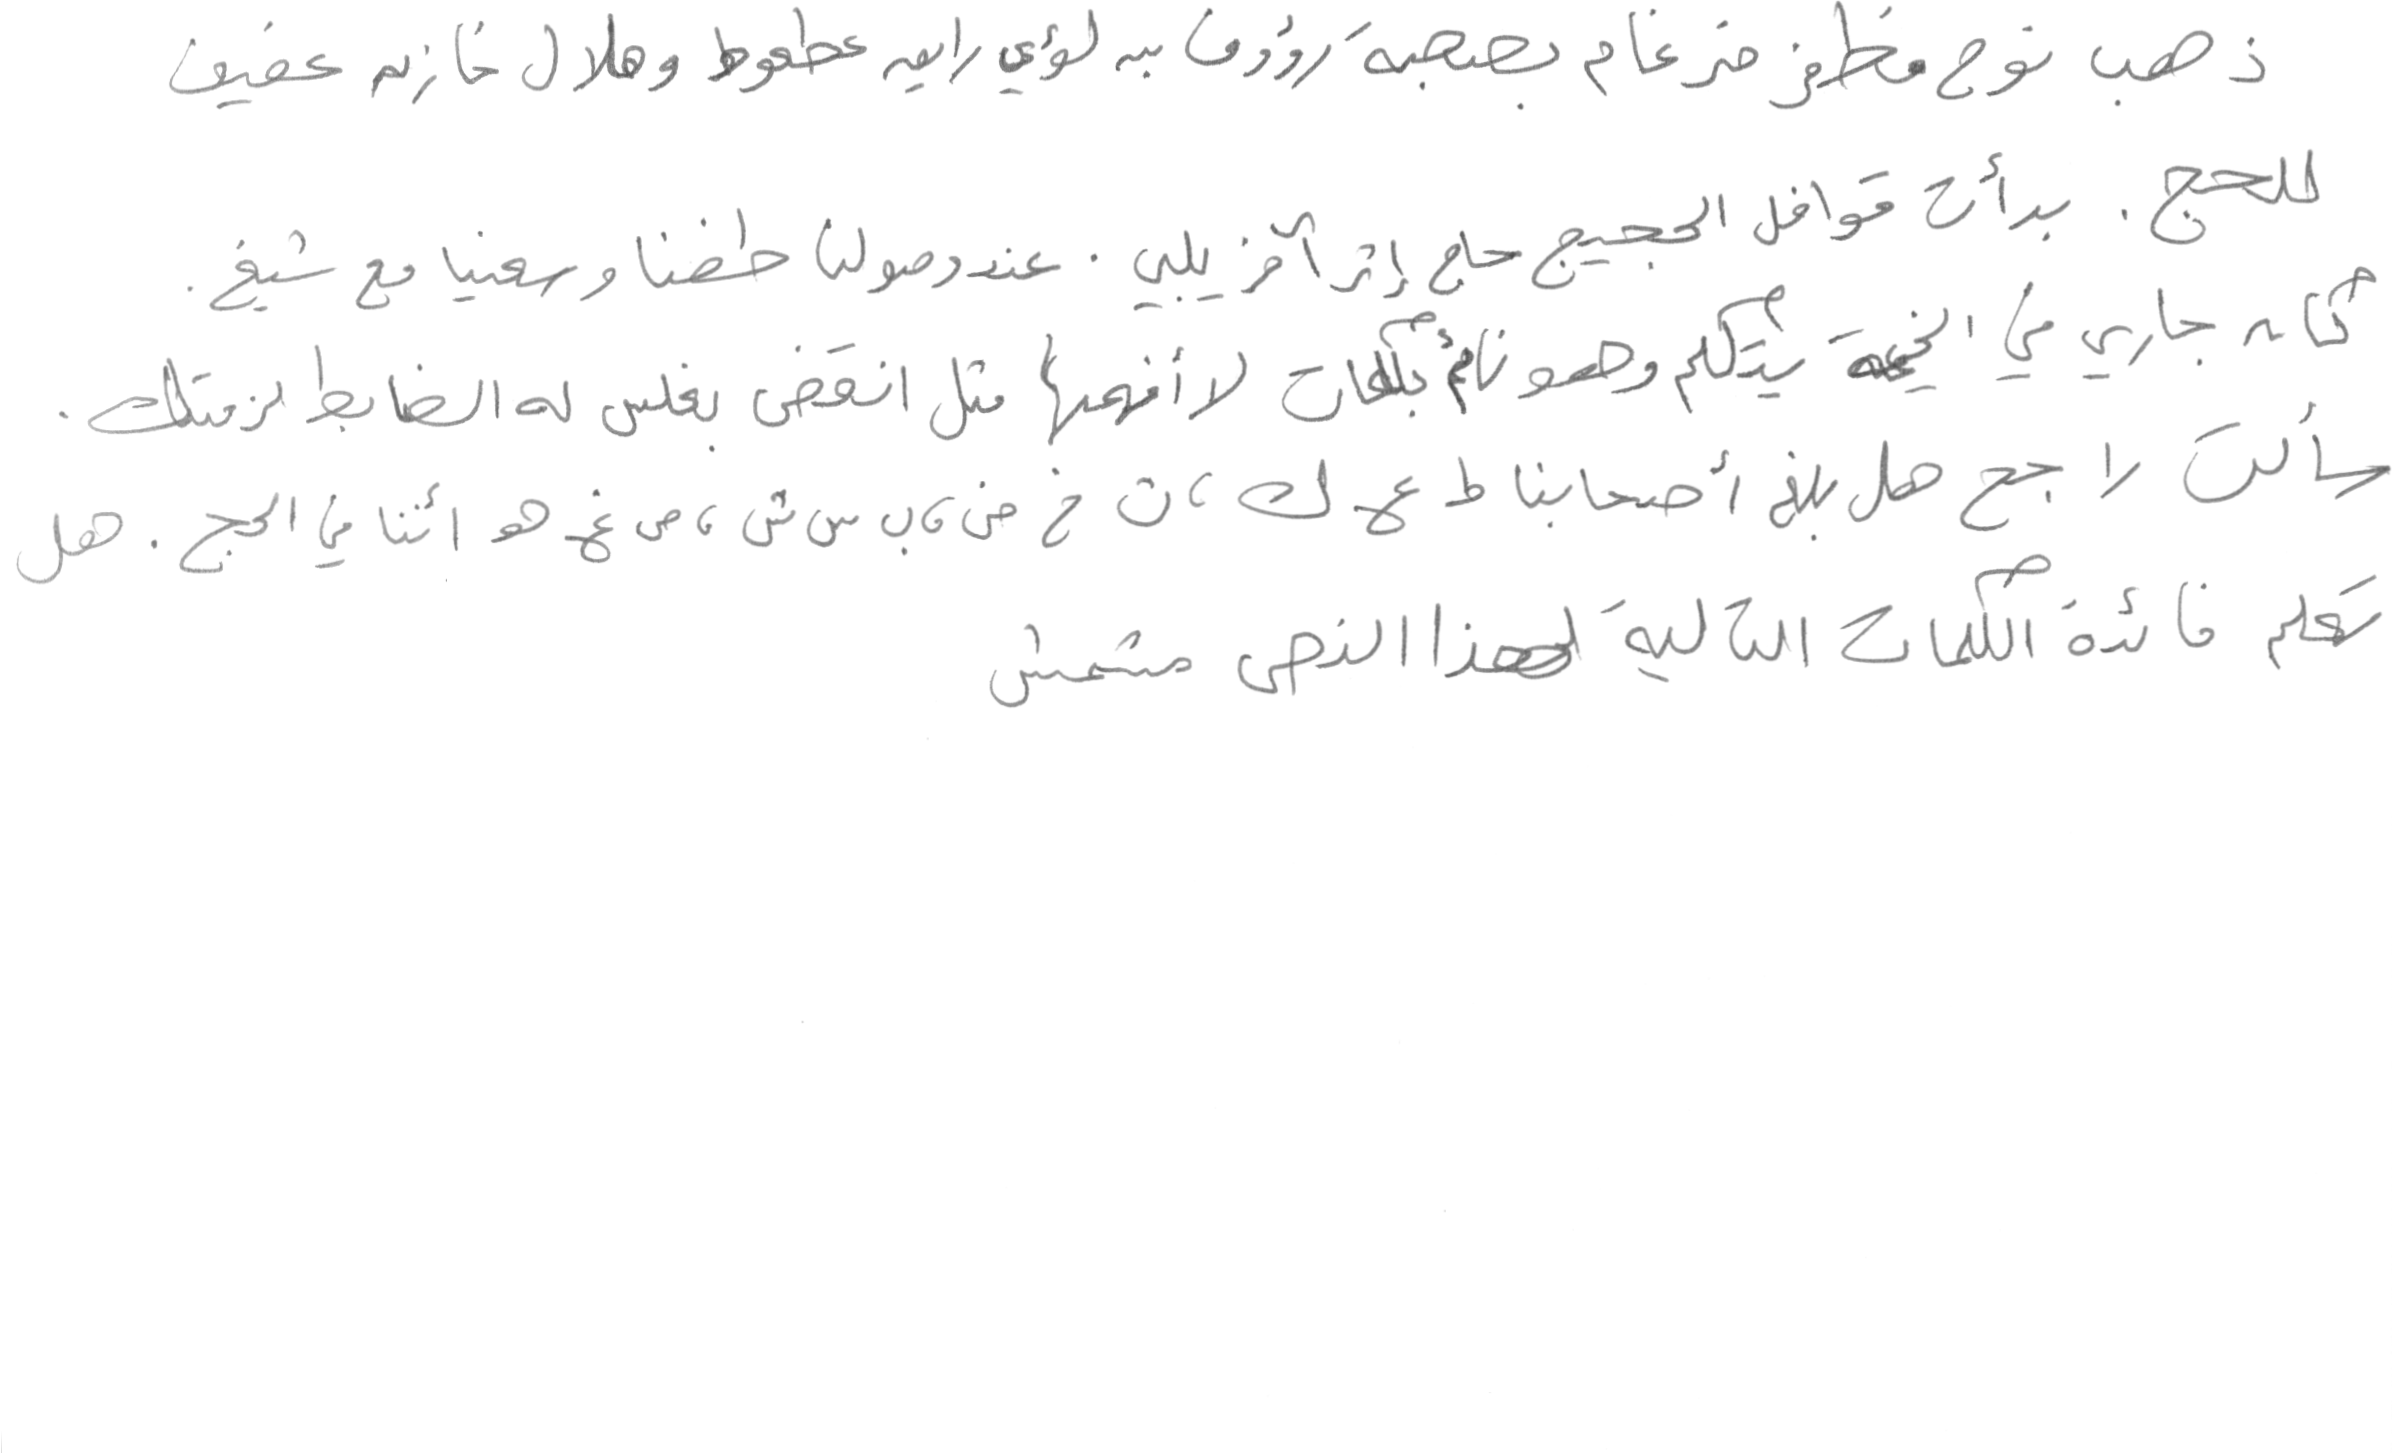 ذهب نوح مظفر ضرغام بصحبة رؤوف بن لؤي راجي عطعوط وهلال خازم عفيف
للحج . بدأت قوافل الحجيج حاج إثر آخر يلبي . عند وصولنا طفنا وسعينا مع شيخ .
كان جاري في الخيمة يتكلم وهو نائم بكلمات لا أفهمها مثل انقض بغلس له الضابط لزمتك .
سألت لاجح هل بلغ أصحابنا ط ع ك ، ث خ ض ، ب س ش ، ص غ هـ اثنا في الحج . هل
تعلم فائدة الكلمات التالية لهذا النص مشمش